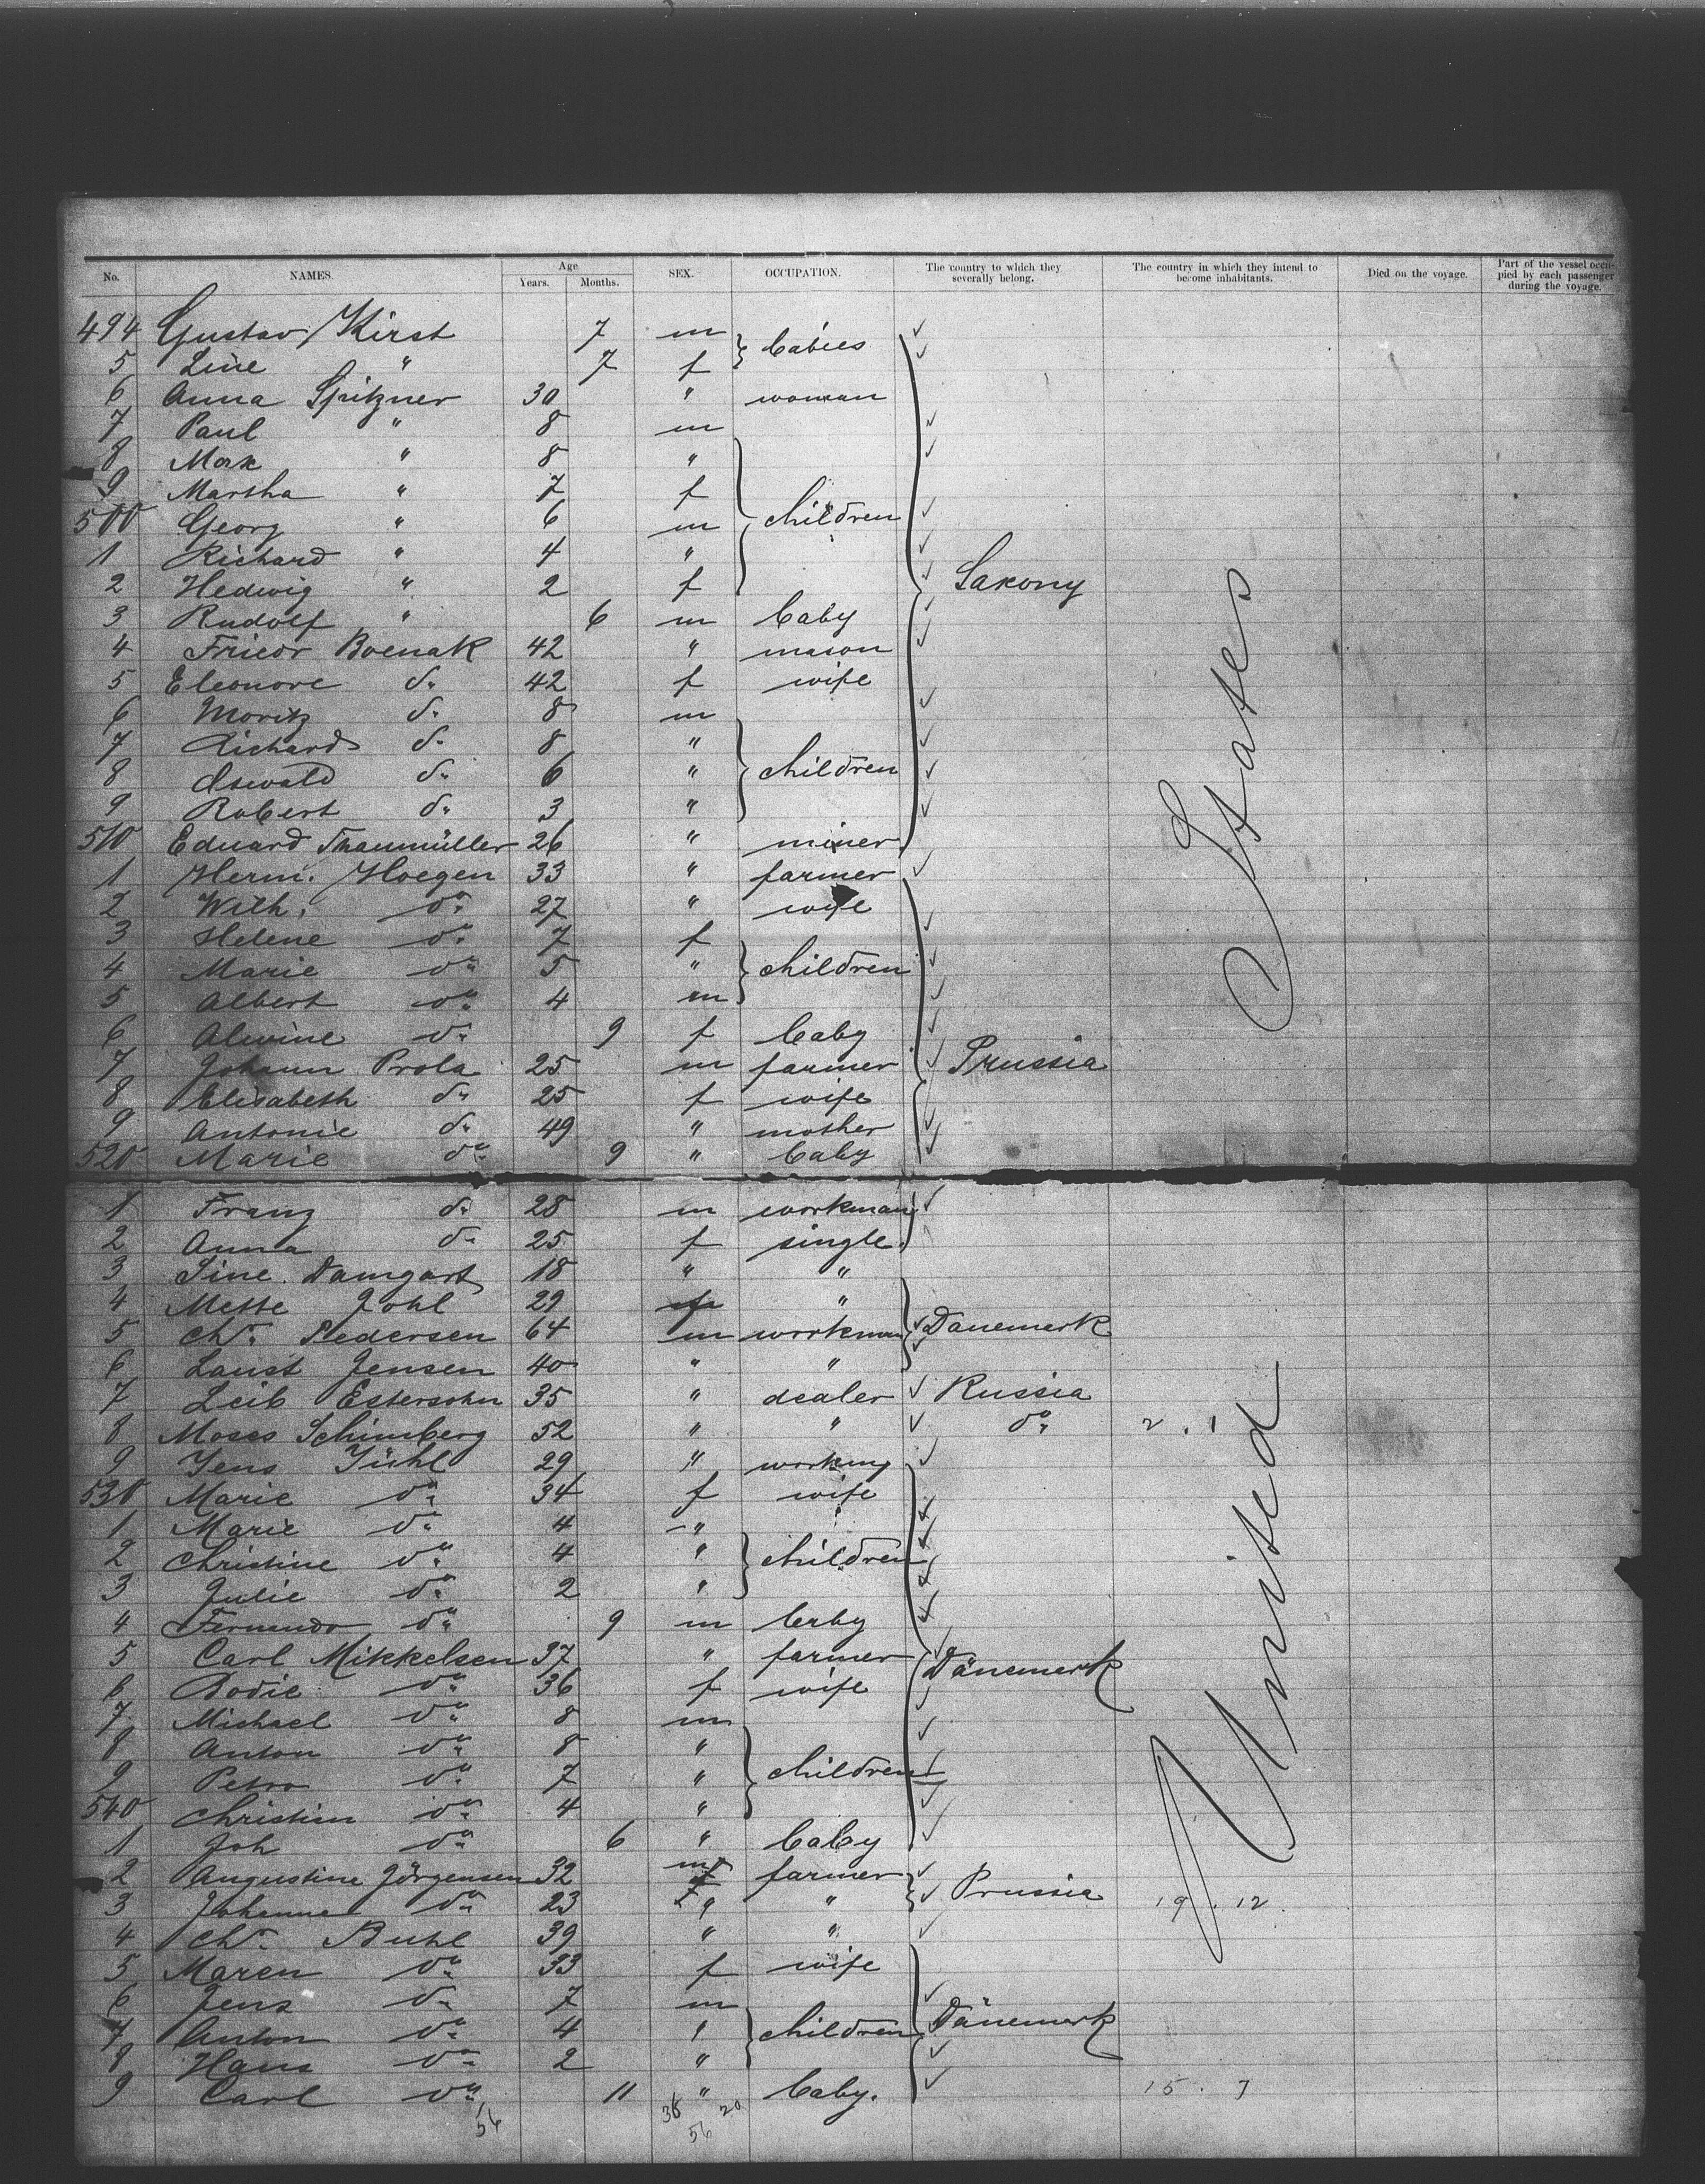 No. NAMES. Age Years. Months. SEX. OCCUPATION. The country to which they severally belong. The country in which they intend to become inhabitants. Died on the voyage. Part of the vessel occupied by each passenger during the voyage.
494 Gustav Kirst 7 m babies
5 Line " 7 f
6 Anna Spitzner 30 " woman
7 Paul " 8 m
8 Max " 8 "
9 Martha " 7 f
500 Georg " 6 m children
1 Richard " 4 "
2 Hedwig " 2 f Saxony
3 Rudolf " 6 m baby
4 Friedr Boenak 42 " mason
5 Eleonore do 42 f wife
6 Moritz do 8 m
7 Richard do 8 "
8 Oswald do 6 " children
9 Robert do 3 "
510 Eduard Thaumüller 26 " miner
1 Herm. Hoegen 33 " farmer
2 Wilh. do 27 " wife
3 Helene do 7 f
4 Marie do 5 " children
5 Albert do 4 m
6 Alwine do 9 f baby
7 Johann Prola 25 m farmer Prussia
8 Elisabeth do 25 f wife
9 Antonie do 49 " mother
520 Marie do 9 " baby
1 Franz do 28 m workman
2 Anna do 25 f single.
3 Sine Damgart 18 " "
4 Mette Johl 29 "
5 Chr. Pedersen 64 m workman Danemark
6 Laust Jensen 40 " "
7 Leib Estersohn 35 " dealer Russia
8 Moses Schimberg 52 " " do 2 . 1
9 Jens Jühl 29 " working
530 Marie do 34 f wife
1 Marie do 4 "
2 Christine do 4 " children
3 Julie do 2 "
4 do 9 m baby
5 Carl Mikkelsen 37 " farmer Dänemark
6 Bodie do 36 f wife
7 Michael do 8 m
8 Anton do 8 "
9 Petro do 7 " children
540 Christian do 4 "
1 Joh do 6 " baby
2 Augustine Jörgensen 32 farmer
3 Johanne do 23 " " Prussia 19 . 12
4 Chr. Buhl 39 " "
5 Maren do 33 f wife
6 Jens do 7 m
7 Anton do 4 " children Dänemark
8 Hans do 2 "
9 Carl do 11 " baby. 15 . 7
56 36 20
56
United States